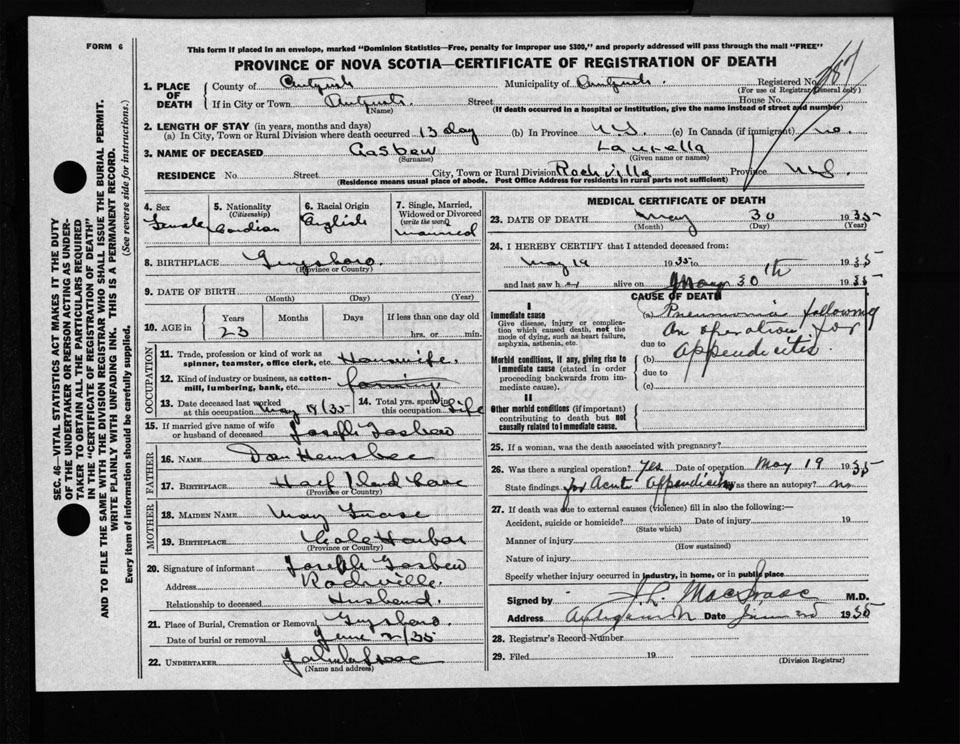 FORM 6
This form if placed in an envelope, marked "Dominion Statistics—Free, penalty for improper use $300," and properly addressed will pass through the mail "FREE"
PROVINCE OF NOVA SCOTIA—CERTIFICATE OF REGISTRATION OF DEATH
SEC. 46—VITAL STATISTICS ACT MAKES IT THE DUTY
OF THE UNDERTAKER OR PERSON ACTING AS UNDER-
TAKER TO OBTAIN ALL THE PARTICULARS REQUIRED
IN THE "CERTIFICATE OF REGISTRATION OF DEATH"
AND TO FILE THE SAME WITH THE DIVISION REGISTRAR WHO SHALL ISSUE THE BURIAL PERMIT.
WRITE PLAINLY WITH UNFADING INK. THIS IS A PERMANENT RECORD.
Every item of information should be carefully supplied. (See reverse side for instructions.)
1. PLACE OF DEATH
County of Municipality of Registered No.
(For use of Registrar General only)
If in City or Town Street House No.
(Name) (If death occurred in a hospital or institution, give the name instead of street and number)
2. LENGTH OF STAY (in years, months and days)
(a) In City, Town or Rural Division where death occurred 13 day (b) In Province N.S. (c) In Canada (if immigrant) no.
3. NAME OF DECEASED
(Surname) (Given name or names)
RESIDENCE No. Street City, Town or Rural Division Rockville Province N.S.
(Residence means usual place of abode. Post Office Address for residents in rural parts not sufficient)
4. Sex Female
5. Nationality (Citizenship)
6. Racial Origin English
7. Single, Married, Widowed or Divorced (write the word) Married
8. BIRTHPLACE Guysboro.
(Province or Country)
9. DATE OF BIRTH
(Month) (Day) (Year)
10. AGE in Years Months Days If less than one day old
23 hrs. or min.
OCCUPATION
11. Trade, profession or kind of work as spinner, teamster, office clerk, etc. Housewife.
12. Kind of industry or business, as cotton-mill, lumbering, bank, etc. farming
13. Date deceased last worked at this occupation May 18/35
14. Total yrs. spent in this occupation Life
15. If married give name of wife or husband of deceased Joseph
FATHER
16. NAME Dan
17. BIRTHPLACE
(Province or Country)
MOTHER
18. MAIDEN NAME May
19. BIRTHPLACE Cole Harbor
(Province or Country)
20. Signature of informant Joseph
Address Rockville
Relationship to deceased Husband.
21. Place of Burial, Cremation or Removal Guysboro.
Date of burial or removal June 2/35
22. UNDERTAKER
(Name and address)
MEDICAL CERTIFICATE OF DEATH
23. DATE OF DEATH May 30 1935
(Month) (Day) (Year)
24. I HEREBY CERTIFY that I attended deceased from:
May 19 1935 to 1935
and last saw her alive on May 30th 1935
CAUSE OF DEATH
I
Immediate cause
Give disease, injury or complication which caused death, not the mode of dying, such as heart failure, asphyxia, asthenia, etc.
(a) Pneumonia following
An operation for
due to Appendicitis.
Morbid conditions, if any, giving rise to immediate cause (stated in order proceeding backwards from immediate cause).
(b)
due to
(c)
II
Other morbid conditions (if important) contributing to death but not causally related to immediate cause.
25. If a woman, was the death associated with pregnancy?
26. Was there a surgical operation? Yes Date of operation May 19 1935
State findings for Acute Appendicitis Was there an autopsy? no
27. If death was due to external causes (violence) fill in also the following:—
Accident, suicide or homicide? Date of injury 19
(State which)
Manner of injury
(How sustained)
Nature of injury
Specify whether injury occurred in industry, in home, or in public place
Signed by M.D.
Address Date 1935
28. Registrar's Record Number
29. Filed 19
(Division Registrar)